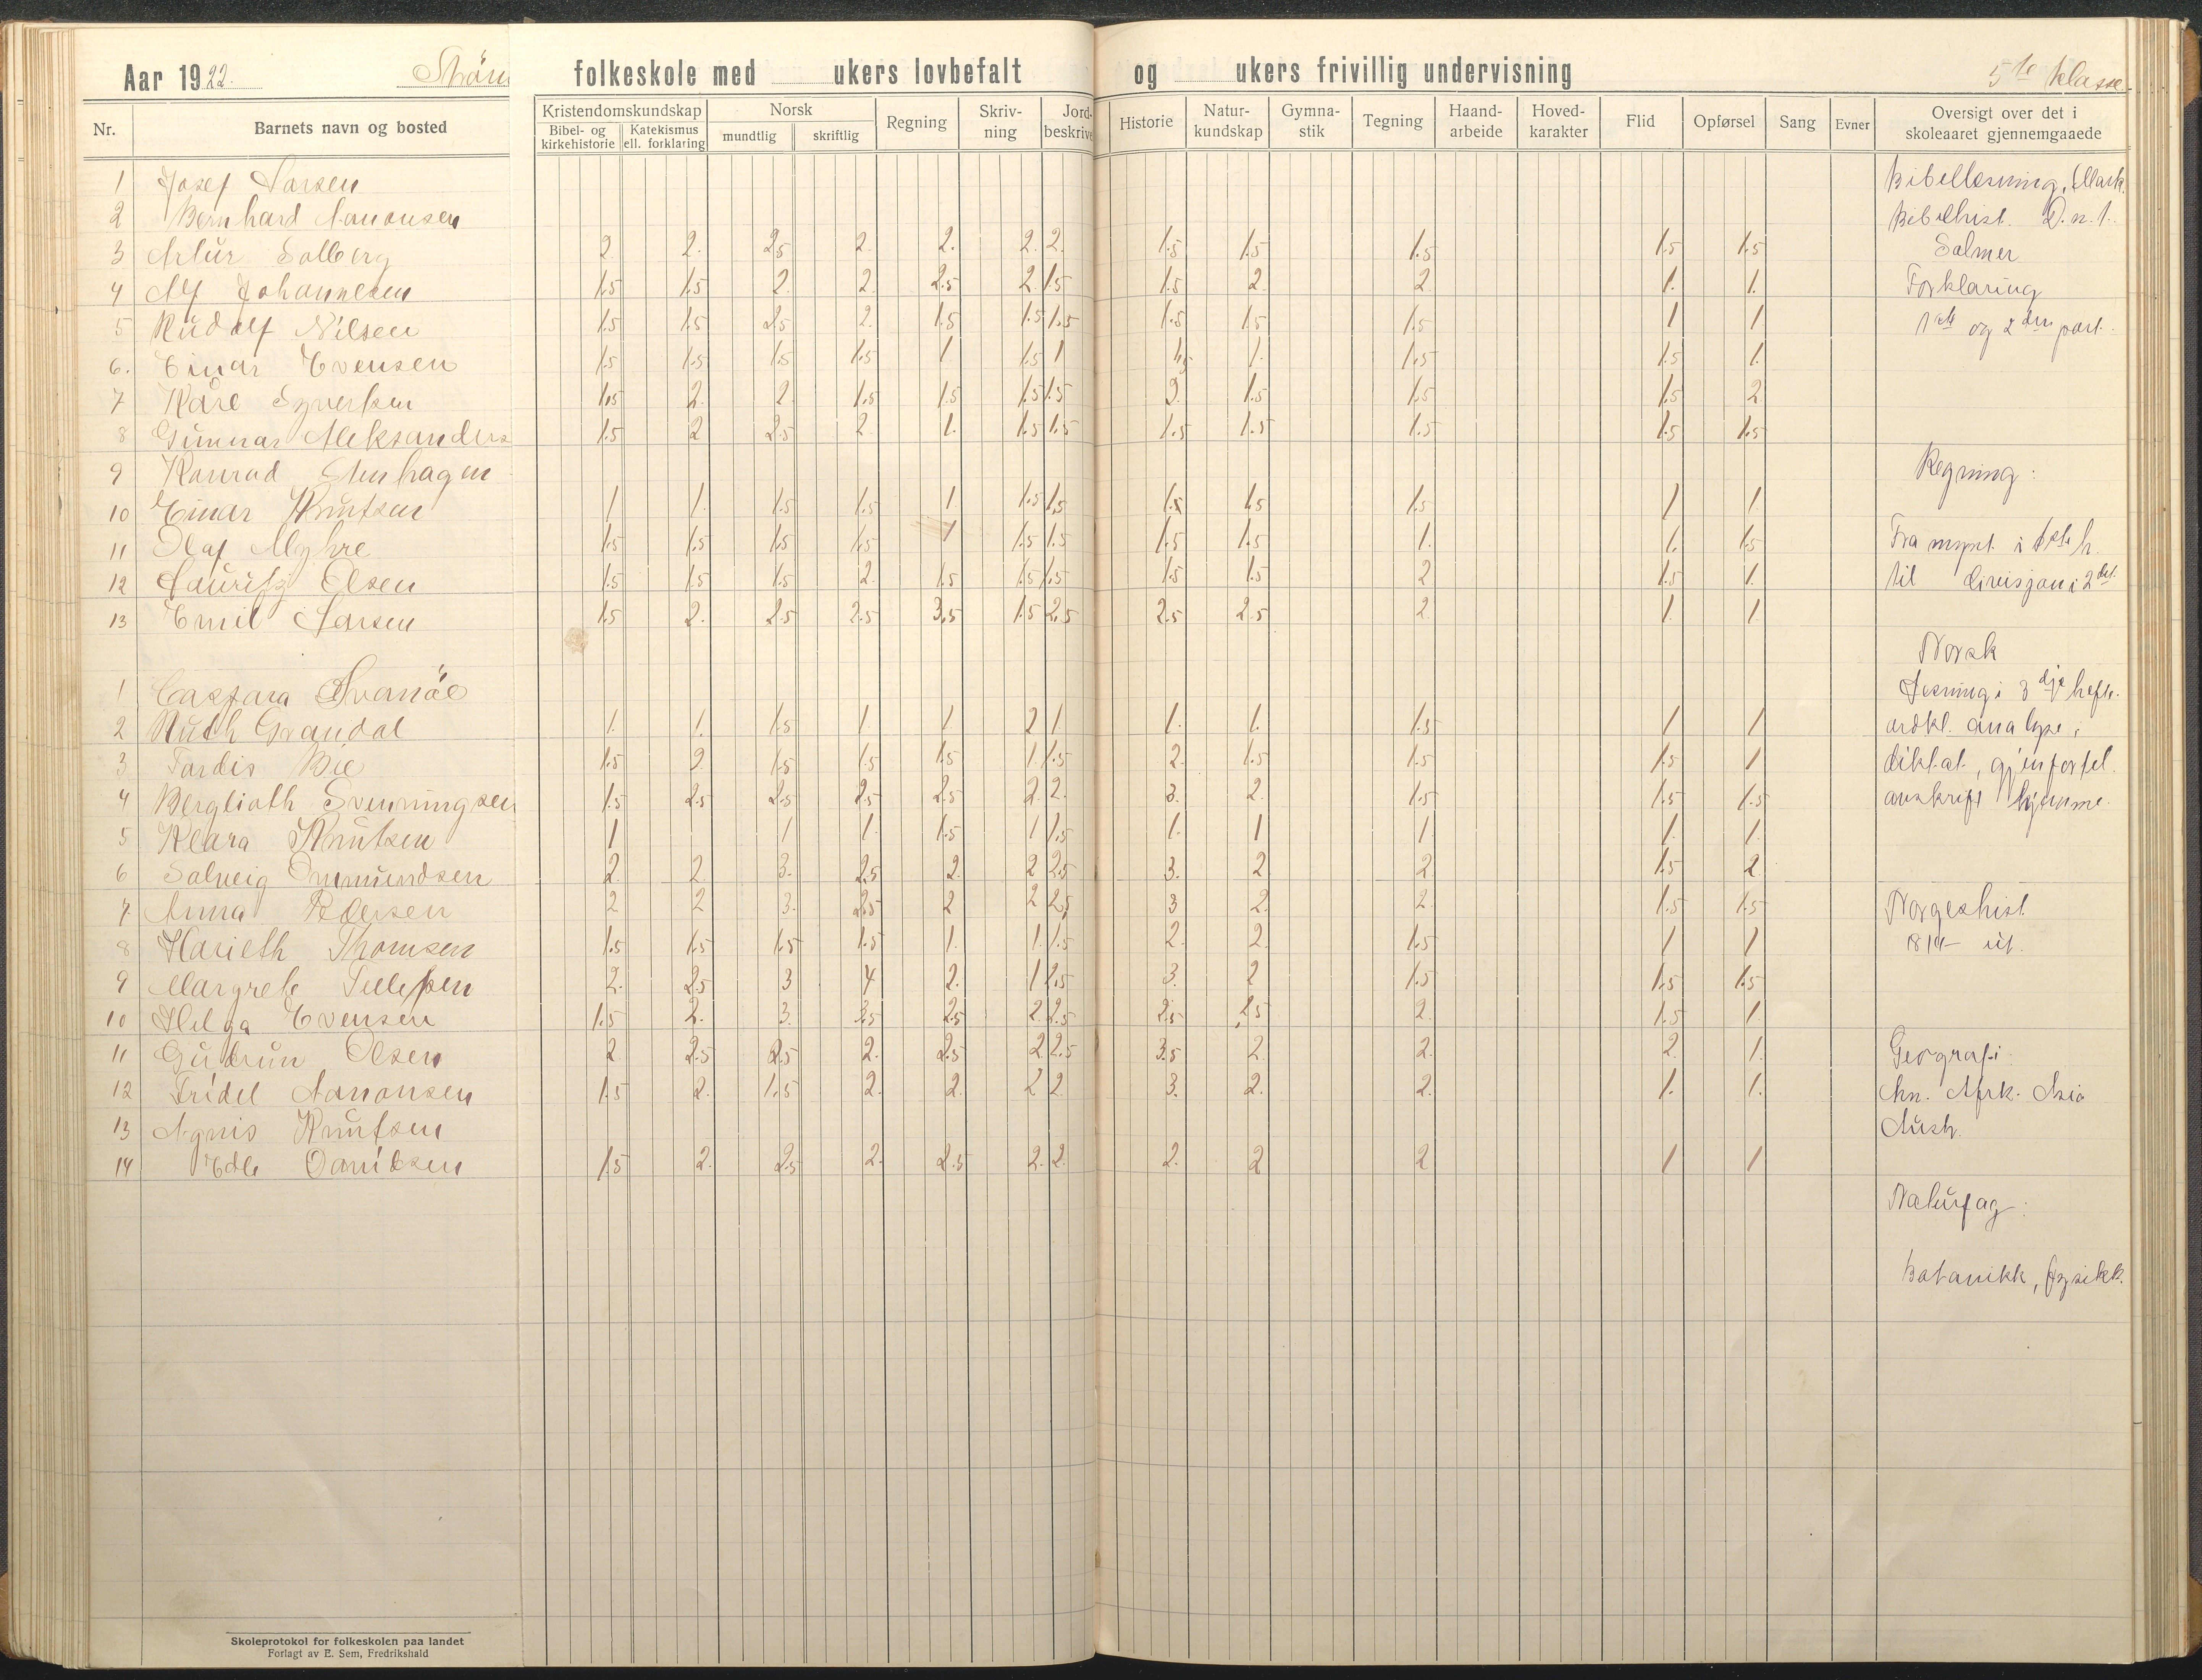 Aar 1922. Ström folkeskole med ukers lovbefalt og ukers frivillig undervisning 5te klasse
Nr. Barnets navn og bosted Kristendomskundskap Bibel- og kirkehistorie Katekismus ell. forklaring Norsk mundtlig skriftlig Regning Skriv-ning Jord-beskrive Historie Natur-kundskap Gymna-stik Tegning Haand-arbeide Hoved-karakter Flid Opførsel Sang Evner Oversigt over det i skoleaaret gjennemgaaede
1 Josef Larsen Bibellesning, Mark.
2 Bernhard Aanonsen Bibelhist. D. n. t.
3 Artur Solberg 2 2. 2.5 2. 2. 2. 2. 1.5 1.5 1.5 1.5 1.5 Salmer
4 Alf Johannesen 1.5 1.5 2. 2. 2.5 2. 1.5 1.5 2. 2. 1. 1. Forklaring
5 Rudolf Nilsen 1.5 1.5 2.5 2. 1.5 1.5 1.5 1.5 1.5 1.5 1 1 1ste og 2den part.
6. Einar Evensen 1.5 1.5 1.5 1.5 1 1.5 1 1.5 1. 1.5 1.5 1.
7 Kåre Syvertsen 1.5 2. 2. 1.5 1.5 1.5 1.5 2. 1.5 1.5 1.5 2
8 Gunnar Aleksanders 1.5 2 2.5 2. 1. 1.5 1.5 1.5 1.5 1.5 1.5 1.5
9 Konrad Stenhagen Regning:
10 Einar Knutsen 1 1. 1.5 1.5 1 1.5 1.5 1.5 1.5 1.5 1 1
11 Olaf Myhre 1.5 1.5 1.5 1.5 1 1.5 1.5 1.5 1.5 1. 1. 1.5 Fra i 1ste h.
12 Lauritz Olsen 1.5 1.5 1.5 2. 1.5 1.5 1.5 1.5 1.5 2 1.5 1. til divisjon i 2det.
13 Emil Larsen 1.5 2. 2.5 2.5 3.5 1.5 2.5 2.5 2.5 2 1 1
Norsk
1 Caspara Svanöe Lesning i 3dje hefte.
2 Ruth Grandal 1. 1. 1.5 1 1 2 1 1. 1. 1.5 1 1 ordkl. analyse,
3 Tordis Bie 1.5 2 1.5 1.5 1.5 1. 1.5 2. 1.5 1.5 1.5 1 diktat, gjenfortel.
4 Berglioth Svenningsen 1.5 2.5 2.5 2.5 2.5 2 2. 3. 2. 1.5 1.5 1.5 avskrift hjemme.
5 Klara Knutsen 1 1 1. 1.5 1 1.5 1. 1 1 1. 1.
6 Solveig Ommundsen 2. 2. 3. 2.5 2. 2 2.5 3. 2 2 1.5 2
7. Anna Pedersen 2 2 3. 2.5 2 2 2.5 3 2. 2. 1.5 1.5 Norgeshist.
8 Harieth Thomsen 1.5 1.5 1.5 1.5 1. 1. 1.5 2. 2. 1.5 1 1 1814 ut.
9 Margrete Tellefsen 2. 2.5 3 4 2. 1 2.5 3. 2 1.5 1.5 1.5
10 Helga Evensen 1.5 2. 3. 3.5 2.5 2. 2.5 2.5 2.5 2. 1.5 1.
11 Gudrun Olsen 2 2.5 2.5 2. 2.5 2. 2.5 3.5 2. 2. 2. 1. Geografi
12 Fridel Aanonsen 1.5 2. 1.5 2. 2. 2 2. 3. 2. 2. 1. 1. Am. Afrk. Asia
13 Agnis Knutsen Austr.
14 Edle Danielsen 1.5 2. 2.5 2. 2.5 2. 2. 2. 2 2 1 1
Naturfag:
Botanikk, fysikk.
Skoleprotokol for folkeskolen paa landet
Forlagt av E. Sem, Fredrikshald